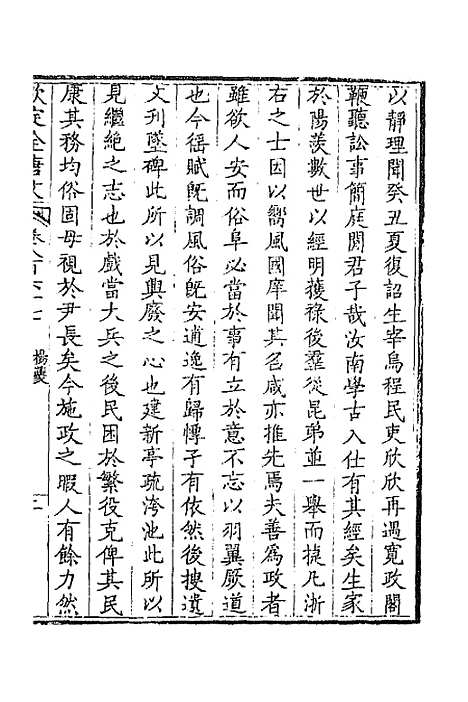 以靜理聞癸丑夏復詔生宰烏程民吏欣欣再遇寬政閣
鞭聽訟事簡庭閴君子哉汝南學古入仕有其經矣生家
於陽羨數世以經明獲祿後羣從昆弟並一舉而捷凡浙
右之士因以嚮風國庠聞其名咸亦推先焉夫善爲政者
雖欲人安而俗阜必當於事有立於意不忘以羽翼厥道
也今徭賦旣調風俗旣安逋逸有歸惸子有依然後搜遺
文刋墜碑此所以見興廢之心也建新亭疏洿池此所以
見繼絶之志也於戲當大兵之後民困於繁役克俾其民
康其務均俗固毋視於尹長矣今施政之暇人有餘力然
欽定全唐文 卷六百十七 楊夔 二